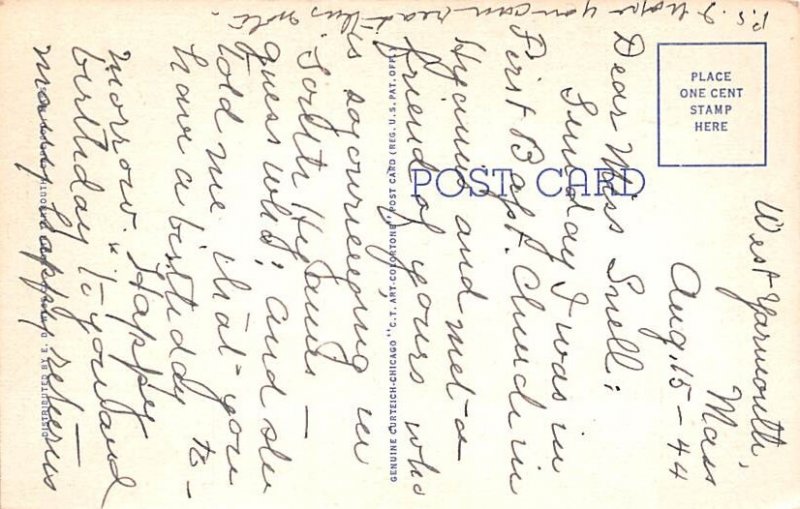 West Yarmouth,
Mass
Aug. 15 - 44
Dear Miss Snell:
Sunday I was in
First Bapt. Church in
Hyannis and met a
friend of yours who
is sojourning in
South Hyannis —
guess who; and she
told me that you
have a birthday to-
morrow." Happy
birthday to you and
many happy returns
P.S. I hope you can read this note.
POST CARD
PLACE
ONE CENT
STAMP
HERE
GENUINE CURTEICH-CHICAGO "C.T. ART-COLORTONE" POST CARD (REG. U.S. PAT. OFF.)
DISTRIBUTED BY E. D.